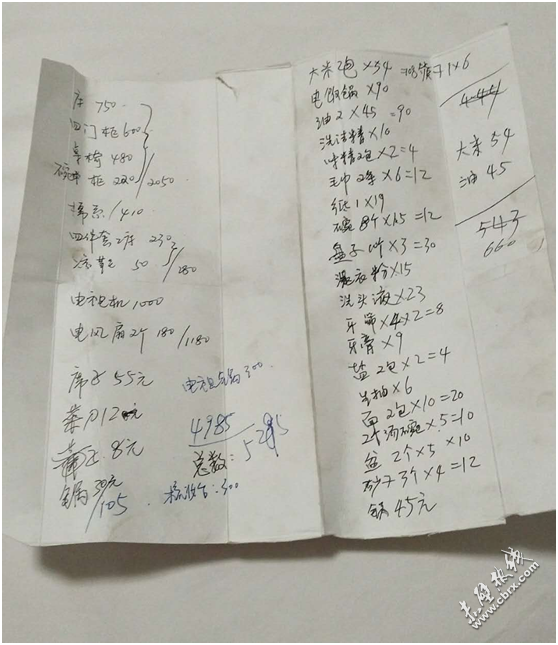 床 750
四门柜 600
桌椅 480
碗柜 220 / 2050
棉絮 / 410
四件套2床 230
床单 50 / 280
电视机 1000
电风扇2个 180 / 1180
席子 55元
菜刀 12元
8元
锅 30元
/ 105
300
4985
总数: 5285
: 300
大米 2包 × 54
1 × 6
电饭锅 × 90
油 2 × 45 = 90
洗洁精 × 10
味精2包 × 2 = 4
毛巾 2条 × 6 = 12
纸 1 × 19
碗 8个 × 1.5 = 12
盘子 10个 × 3 = 30
洗衣粉 × 15
洗头液 × 23
牙刷 × 4 × 2 = 8
牙膏 × 9
盐 2包 × 2 = 4
生抽 × 6
面 2包 × 10 = 20
2个汤碗 × 5 = 10
盆 2个 × 5 × 10
砂子 3个 × 4 = 12
锅 45元
444
大米 54
油 45
543
660
赤壁热线
www.cbrx.com